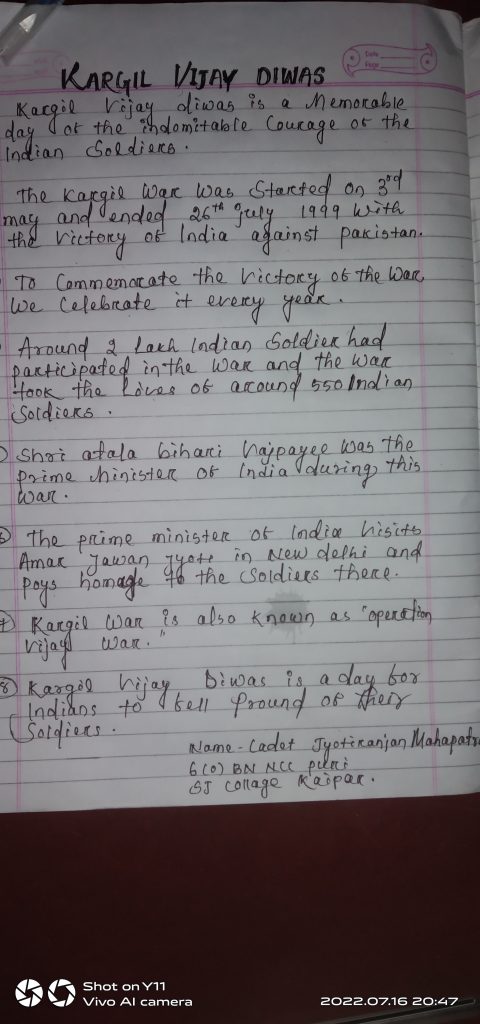 Date
Page
KARGIL VIJAY DIWAS
Kargil Vijay diwas is a Memorable
day of the indomitable Courage of the
Indian Soldiers.
The Kargil War Was Started on 3rd
may and ended 26th july 1999 With
the Victory of India against pakistan.
To Commemorate the Victory of the War,
We Celebrate it every year.
Around 2 lakh Indian Soldier had
participated in the War and the War
took the lives of around 550 Indian
Soldiers.
Shri atala bihari Vajpayee Was the
prime Minister of India during this
War.
6 The prime minister of India Visits
Amar Jawan Jyoti in New delhi and
Pays homage to the Soldiers there.
7 Kargil War is also known as "operation
Vijay War."
8 Kargil Vijay Diwas is a day for
Indians to fell Pround of Their
Soldiers.
Name - Cadet Jyotiranjan Mahapatra
6(O) BN NCC puri
SJ Collage Raipar.
Shot on Y11
Vivo AI camera
2022.07.16 20:47